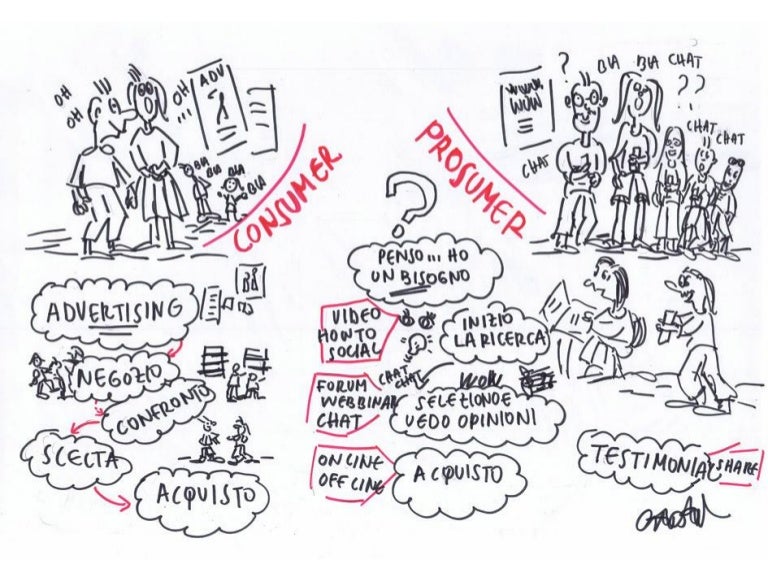 OH
OH
OH
...
ADV
BLA
BLA
BLA
BLA
CONSUMER
ADVERTISING
NEGOZIO
CONFRONTO
SCELTA
ACQUISTO
PROSUMER
WWW
WOW
?
BLA BLA CHAT
??
CHAT
CHAT
CHAT
?
PENSO... HO
UN BISOGNO
VIDEO
HOWTO
SOCIAL
INIZIO
LA RICERCA
FORUM
WEBBINAR
CHAT
CHAT
CHAT
WOW
SELEZIONOE
VEDO OPINIONI
ONLINE
OFFLINE
ACQUISTO
TESTIMONIA
SHARE